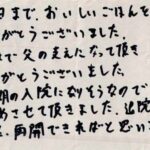 日まで、おいしいごはんを
がとうございました。
まで父の支えになって頂き
がとうございました。
期の入院になりそうなので
めさせて頂きました。退院
、再開できればと思い